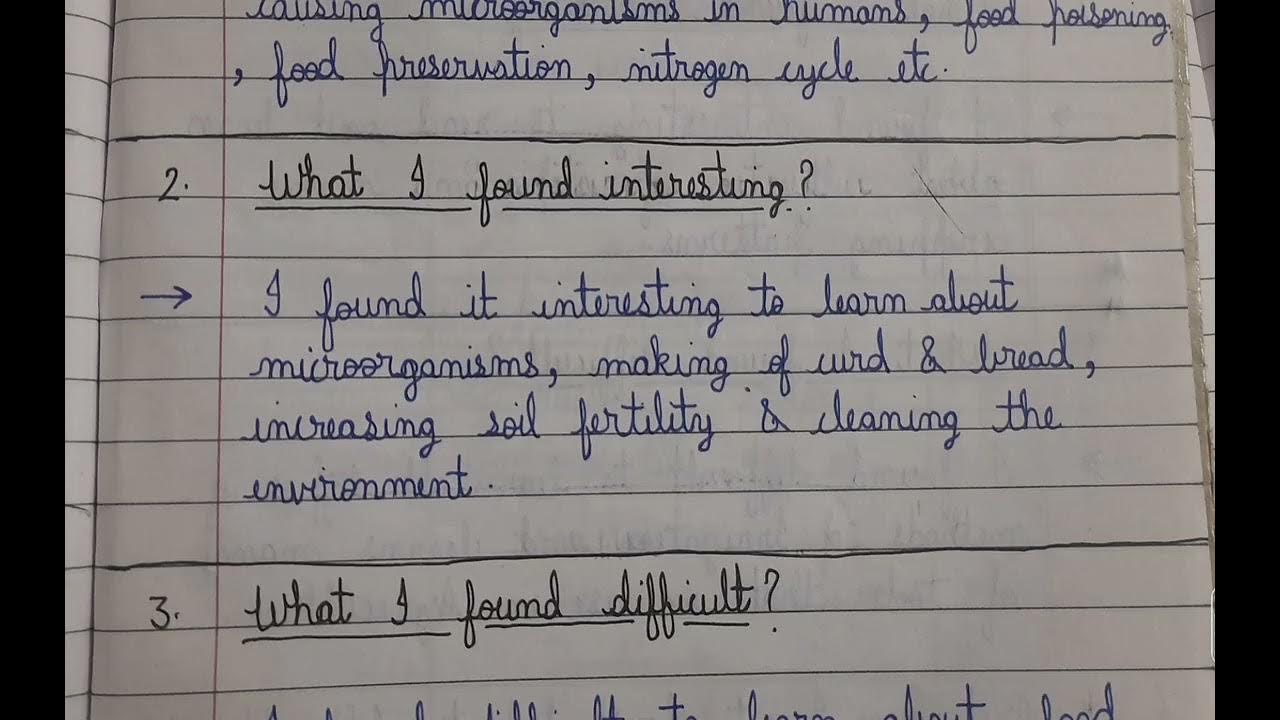 causing microorganisms in humans, food poisoning
, food preservation, nitrogen cycle etc.
2. What I found interesting?
→ I found it interesting to learn about
microorganisms, making of curd & bread,
increasing soil fertility & cleaning the
environment.
3. What I found difficult?
to learn about food